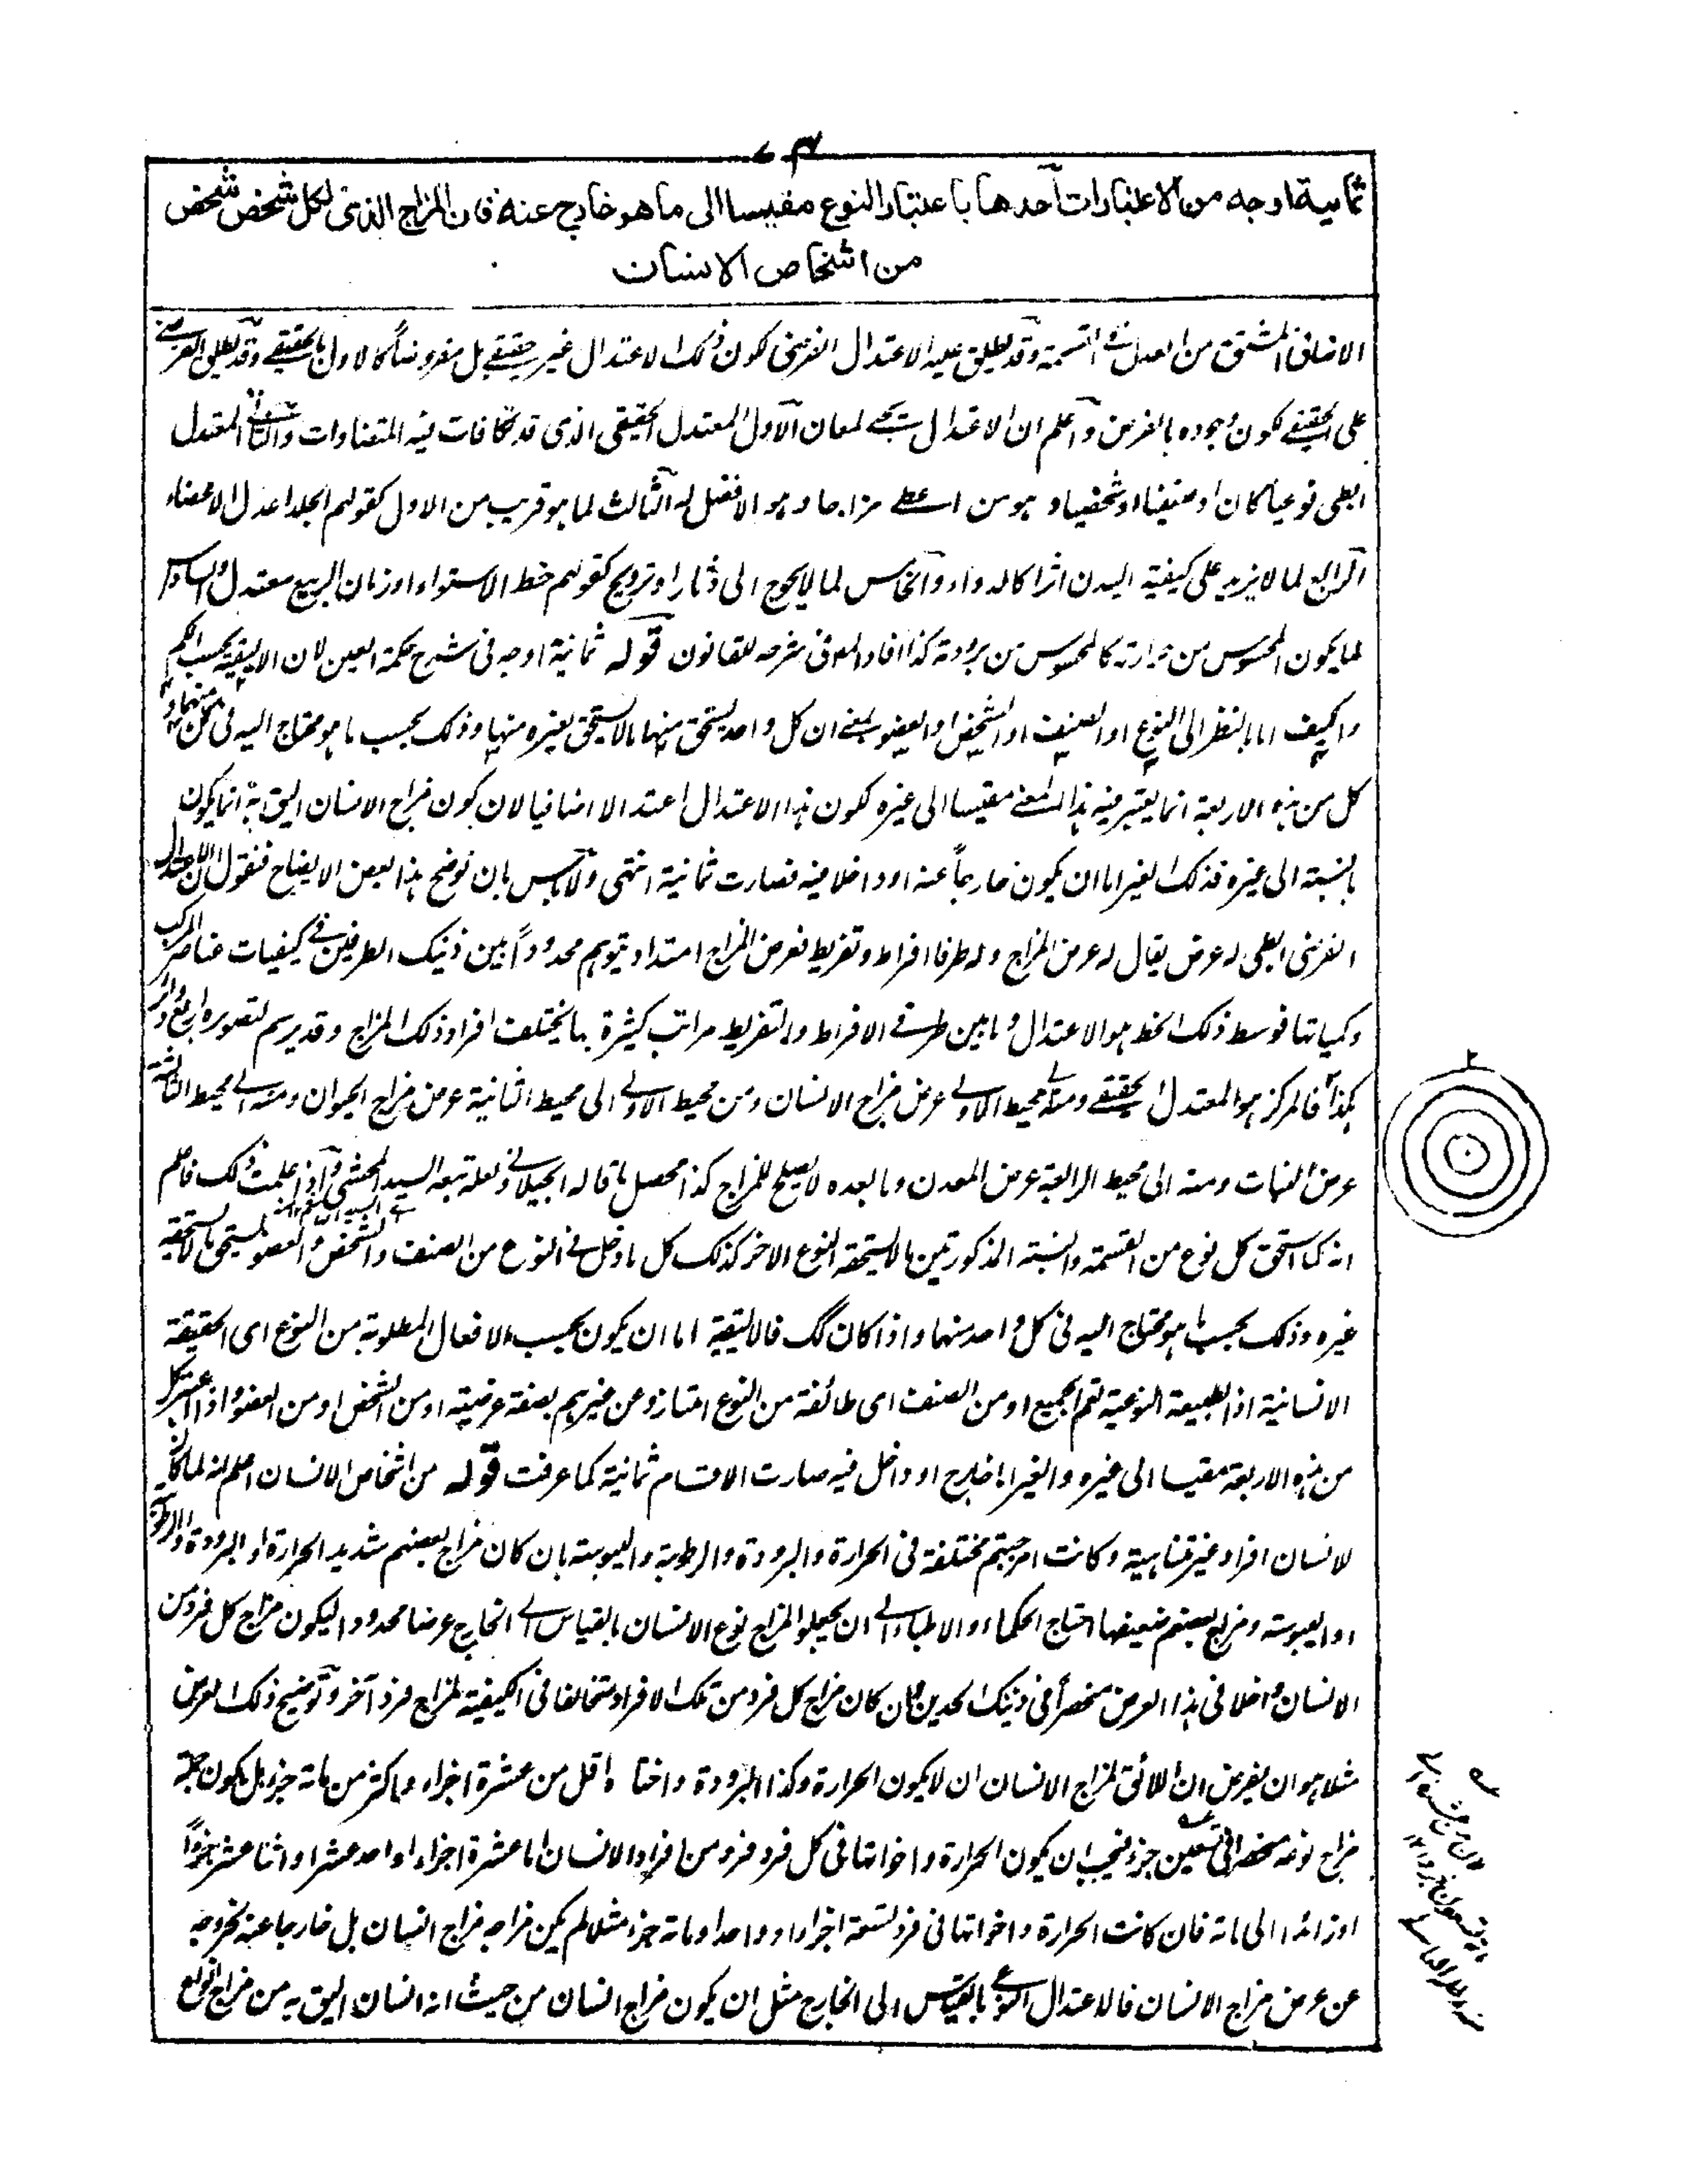 ثمانية اوجه من الاعتبارات احدها باعتبار النوع مقيسا الى ما هو خارج عنه فان المزاج الذى لكل شخص شخص
من اشخاص الانسان
الاضافى المشتق من العدل فى القسمة وقد يطلق عليه الاعتدال الفرضى لكون ذلك الاعتدال غير حقيقى بل مفروضاً كالاول بالحقيقى وقد يطلق الفرضى
على الحقيقى لكون وجوده بالفرض واعلم ان الاعتدال يجئ لمعان الاول المعتدل الحقيقى الذى قد تكافات فيه المتضادات والثانى المعتدل
الطبى نوعيا كان او صنفيا او شخصيا و هو من اعطى مزاجا و هو الافضل له الثالث لما هو قريب من الاول كقولهم الجلد اعدل الاعضاء
الرابع لما لا يزيد على كيفية البدن اثرا كالدواء والخامس لما لا يحوج الى دثار او ترويح كقولهم خط الاستواء او زمان الربيع معتدل والسادس
لما يكون المحسوس من حرارته كالمحسوس من برودته كذا افاد المولى فى شرحه للقانون قوله ثمانية اوجه فى شرح حكمة العين لان الاليقية بحسب الكم
والكيف اما بالنظر الى النوع او الصنف او الشخص او العضو بمعنى ان كل واحد يستحق منها ما لا يستحق غيره منها وذلك بحسب ما هو محتاج اليه فى كل منها و
كل من هذه الاربعة انما يعتبر فيه هذا المعنى مقيسا الى غيره لكون هذا الاعتدال اعتدالا اضافيا لان كون مزاج الانسان اليق به انما يكون
بالنسبة الى غيره فذلك الغير اما ان يكون خارجاً عنه او داخلا فيه فصارت ثمانية انتهى ولا باس بان نوضح هذا بعض الايضاح فنقول ان الاعتدال
الفرضى الطبى له عرض يقال له عرض المزاج وله طرفا افراط وتفريط فعرض المزاج امتداد يتوهم محدوداً بين ذينك الطرفين فى كيفيات عناصر المركب
وكمياتها فوسط ذلك الخط هو الاعتدال وما بين طرفى الافراط والتفريط مراتب كثيرة بها يختلف افراد ذلك المزاج وقد يرسم لتصويره اربع دوائر
هكذا فالمركز هو المعتدل الحقيقى ومنه الى محيط الاولى عرض مزاج الانسان ومن محيط الاولى الى محيط الثانية عرض مزاج الحيوان ومنه الى محيط الثالثة
عرض النبات ومنه الى محيط الرابعة عرض المعدن وما بعده لا يصلح للمزاج كذا محصل ما قاله الجيلانى ولعله تبعه السيد المحشى واذا علمت ذلك فاعلم
انه كما استحق كل نوع من القسمة والنسبة المذكورتين ما لا يستحقه النوع الاخر كذلك كل ما دخل فى النوع من الصنف والشخص والعضو يستحق ما لا يستحقه
غيره وذلك بحسب ما هو محتاج اليه فى كل واحد منها واذا كان كك فالاليقية اما ان يكون بحسب الافعال المطلوبة من النوع اى الحقيقة
الانسانية اذ الطبيعة النوعية تعم الجميع او من الصنف اى طائفة من النوع امتازوا عن غيرهم بصفة عرضية او من الشخص او من العضو واذا اعتبر كل
من هذه الاربعة مقيسا الى غيره والغير اما خارج او داخل فيه صارت الاقسام ثمانية كما عرفت قوله من اشخاص الانسان اعلم انه لما كان
لانسان افراد غير متناهية وكانت امزجتهم مختلفة فى الحرارة والبرودة والرطوبة واليبوسة بان كان مزاج بعضهم شديد الحرارة او البرودة او الرطوبة
او اليبوسة ومزاج بعضهم ضعيفها احتاج الحكماء والاطباء الى ان يجعلوا لمزاج نوع الانسان بالقياس الى الخارج عرضا محدودا ليكون مزاج كل فرد من
الانسان داخلا فى هذا العرض منحصراً فى ذينك الحدين وان كان مزاج كل فرد من تلك الافراد متخالفا فى الكيفية لمزاج فرد آخر وتوضيح ذلك العرض
مثلا هو ان يفرض ان اللائق لمزاج الانسان ان لا يكون الحرارة وكذا البرودة واختاها اقل من عشرة اجزاء واكثر من مائة جزء بل يكون حد
مزاج نوعه منحصرا فى تسعين جزء فيجب ان يكون الحرارة واخواتها فى كل فرد فرد من افراد الانسان اما عشرة اجزاء او احد عشر او اثنا عشر جزءاً
او زائدا الى مائة فان كانت الحرارة واخواتها فى فرد تسعة اجزاء او واحدا ومائة جزء مثلا لم يكن مزاجه مزاج انسان بل خارجا عنه لخروجه
عن عرض مزاج الانسان فالاعتدال النوعى بالقياس الى الخارج مثل ان يكون مزاج انسان من حيث انه انسان اليق به من مزاج انواع